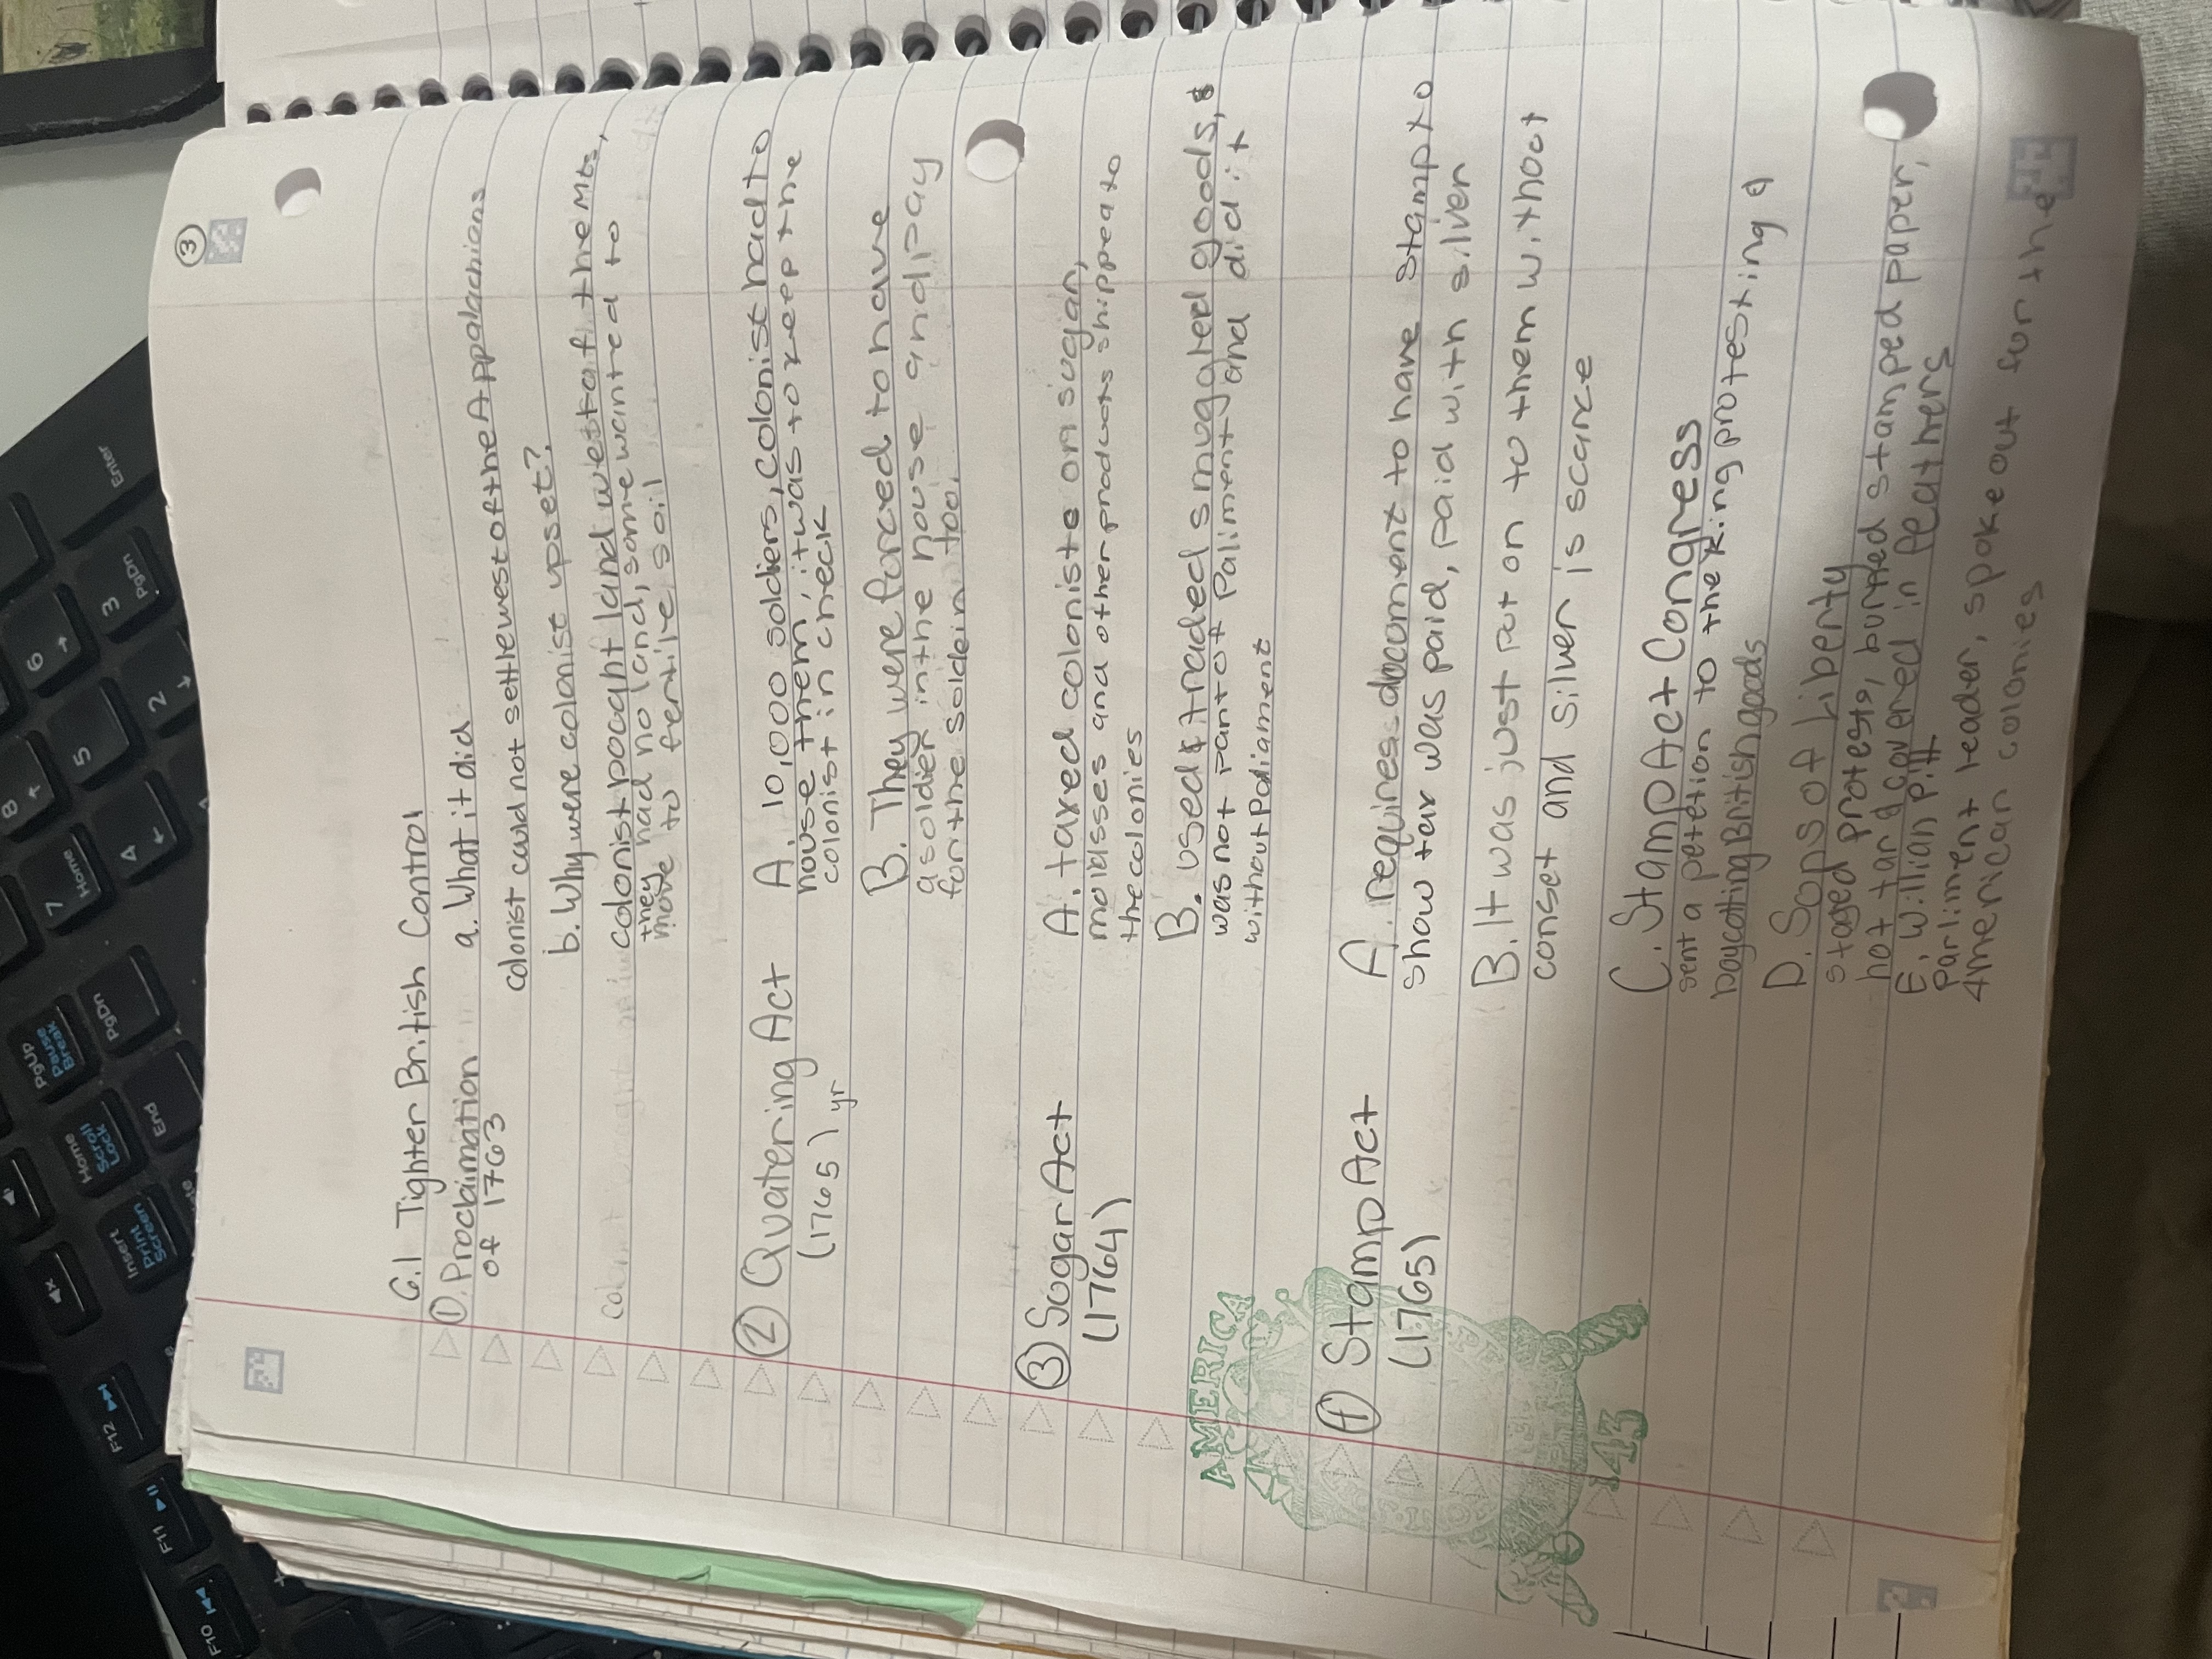 F10
F11
F12
Insert
Print
Screen
Home
Scroll
Lock
PgUp
Pause
Break
End
PgDn
7
Home
8
4
5
6
2
3
PgDn
Enter
3
6.1 Tighter British Control
1. Proclaimation
of 1763
a. What it did
colonist could not settle west of the Appalachians
b. Why were colonist upset?
colonist bought land west of the Mts,
they had no land, some wanted to
move to fertile soil
2 Quatering Act
(1765) yr
A. 10,000 soldiers, colonist had to
house them, it was to keep the
colonist in check
B. They were forced to have
a soldier in the house and pay
for the soldein too.
3 Sugar Act
(1764)
A. taxed colonists on sugar,
molasses and other products shipped to
the colonies
B. used & traded smuggled goods, &
was not part of Paliment and did it
without Paliament
AMERICA
143
4 Stamp Act
(1765)
A. requires document to have stamp to
show tax was paid, paid with silver
B. It was just put on to them without
conset and silver is scarce
C. Stamp Act Congress
sent a petetion to the king protesting &
boycotting British goods
D. Sons of Liberty
staged protests, burned stamped paper,
hot tar & covered in feathers
E. Willian Pitt
Parliment leader, spoke out for the
American colonies